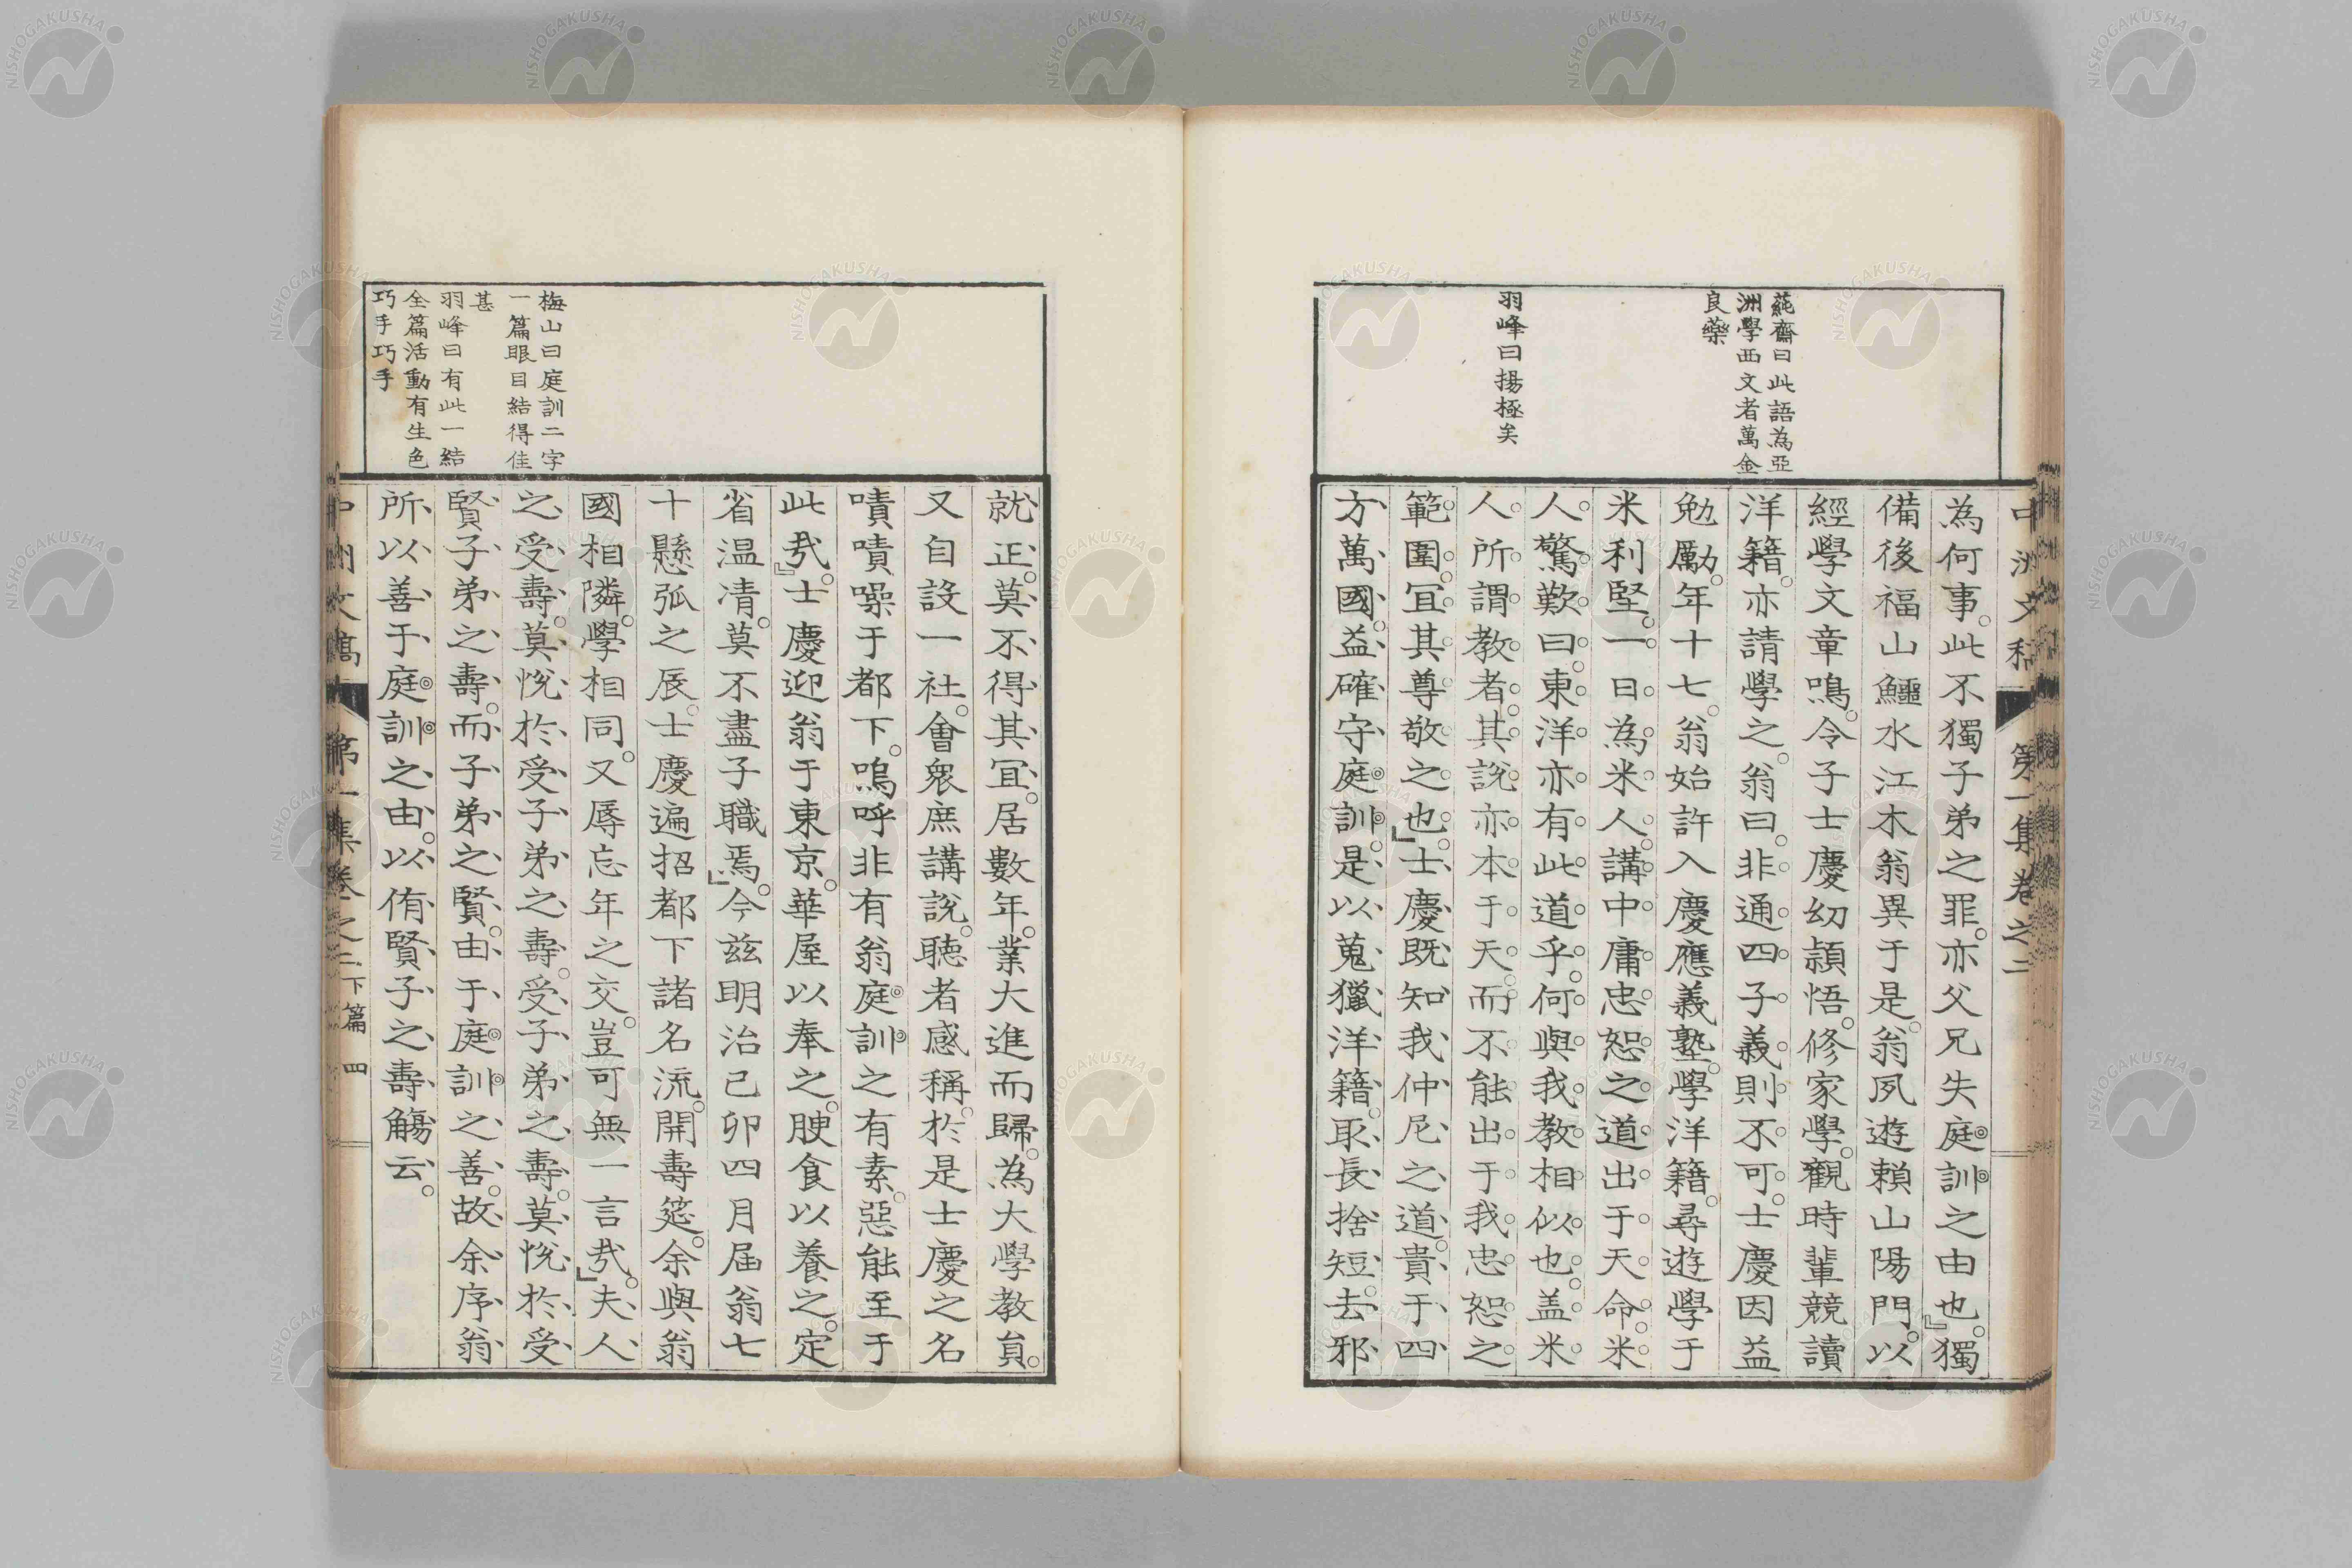 蒓齋曰此語為亞
洲學西文者萬金
良藥
羽峰曰揚極矣
為何事。此不獨子弟之罪。亦父兄失庭訓之由也。』獨
備後福山鱷水江木翁異于是。翁夙遊賴山陽門。以
經學文章鳴。令子士慶幼頴悟。修家學。觀時輩競讀
洋籍。亦請學之。翁曰。非通四子義則不可。士慶因益
勉勵。年十七。翁始許入慶應義塾。學洋籍。尋遊學于
米利堅。一日為米人講中庸忠恕之道出于天命。米
人驚歎曰。東洋亦有此道乎。何與我教相似也。盖米
人所謂教者。其說亦本于天。而不能出于我忠恕之
範圍。冝其尊敬之也。』士慶既知我仲尼之道。貴于四
方萬國。益確守庭訓。是以蒐獵洋籍。取長捨短。去邪
梅山曰庭訓二字
一篇眼目結得佳
甚
羽峰曰有此一結
全篇活動有生色
巧手巧手
就正。莫不得其冝。居數年。業大進而歸。為大學教負。
又自設一社。會衆庶講說。聽者感稱。於是士慶之名
嘖嘖噪于都下。嗚呼非有翁庭訓之有素。惡能至于
此㢤。』士慶迎翁于東京。華屋以奉之。腴食以養之。定
省温清。莫不盡子職焉。』今兹明治己卯四月届翁七
十懸弧之辰。士慶遍招都下諸名流。開壽筵。余與翁
國相隣。學相同。又辱忘年之交。豈可無一言㢤。』夫人
之受壽。莫悅於受子弟之壽。受子弟之壽。莫悅於受
賢子弟之壽。而子弟之賢。由于庭訓之善。故余序翁
所以善于庭訓之由。以侑賢子之壽觴云。
第一集卷之二 下篇 四